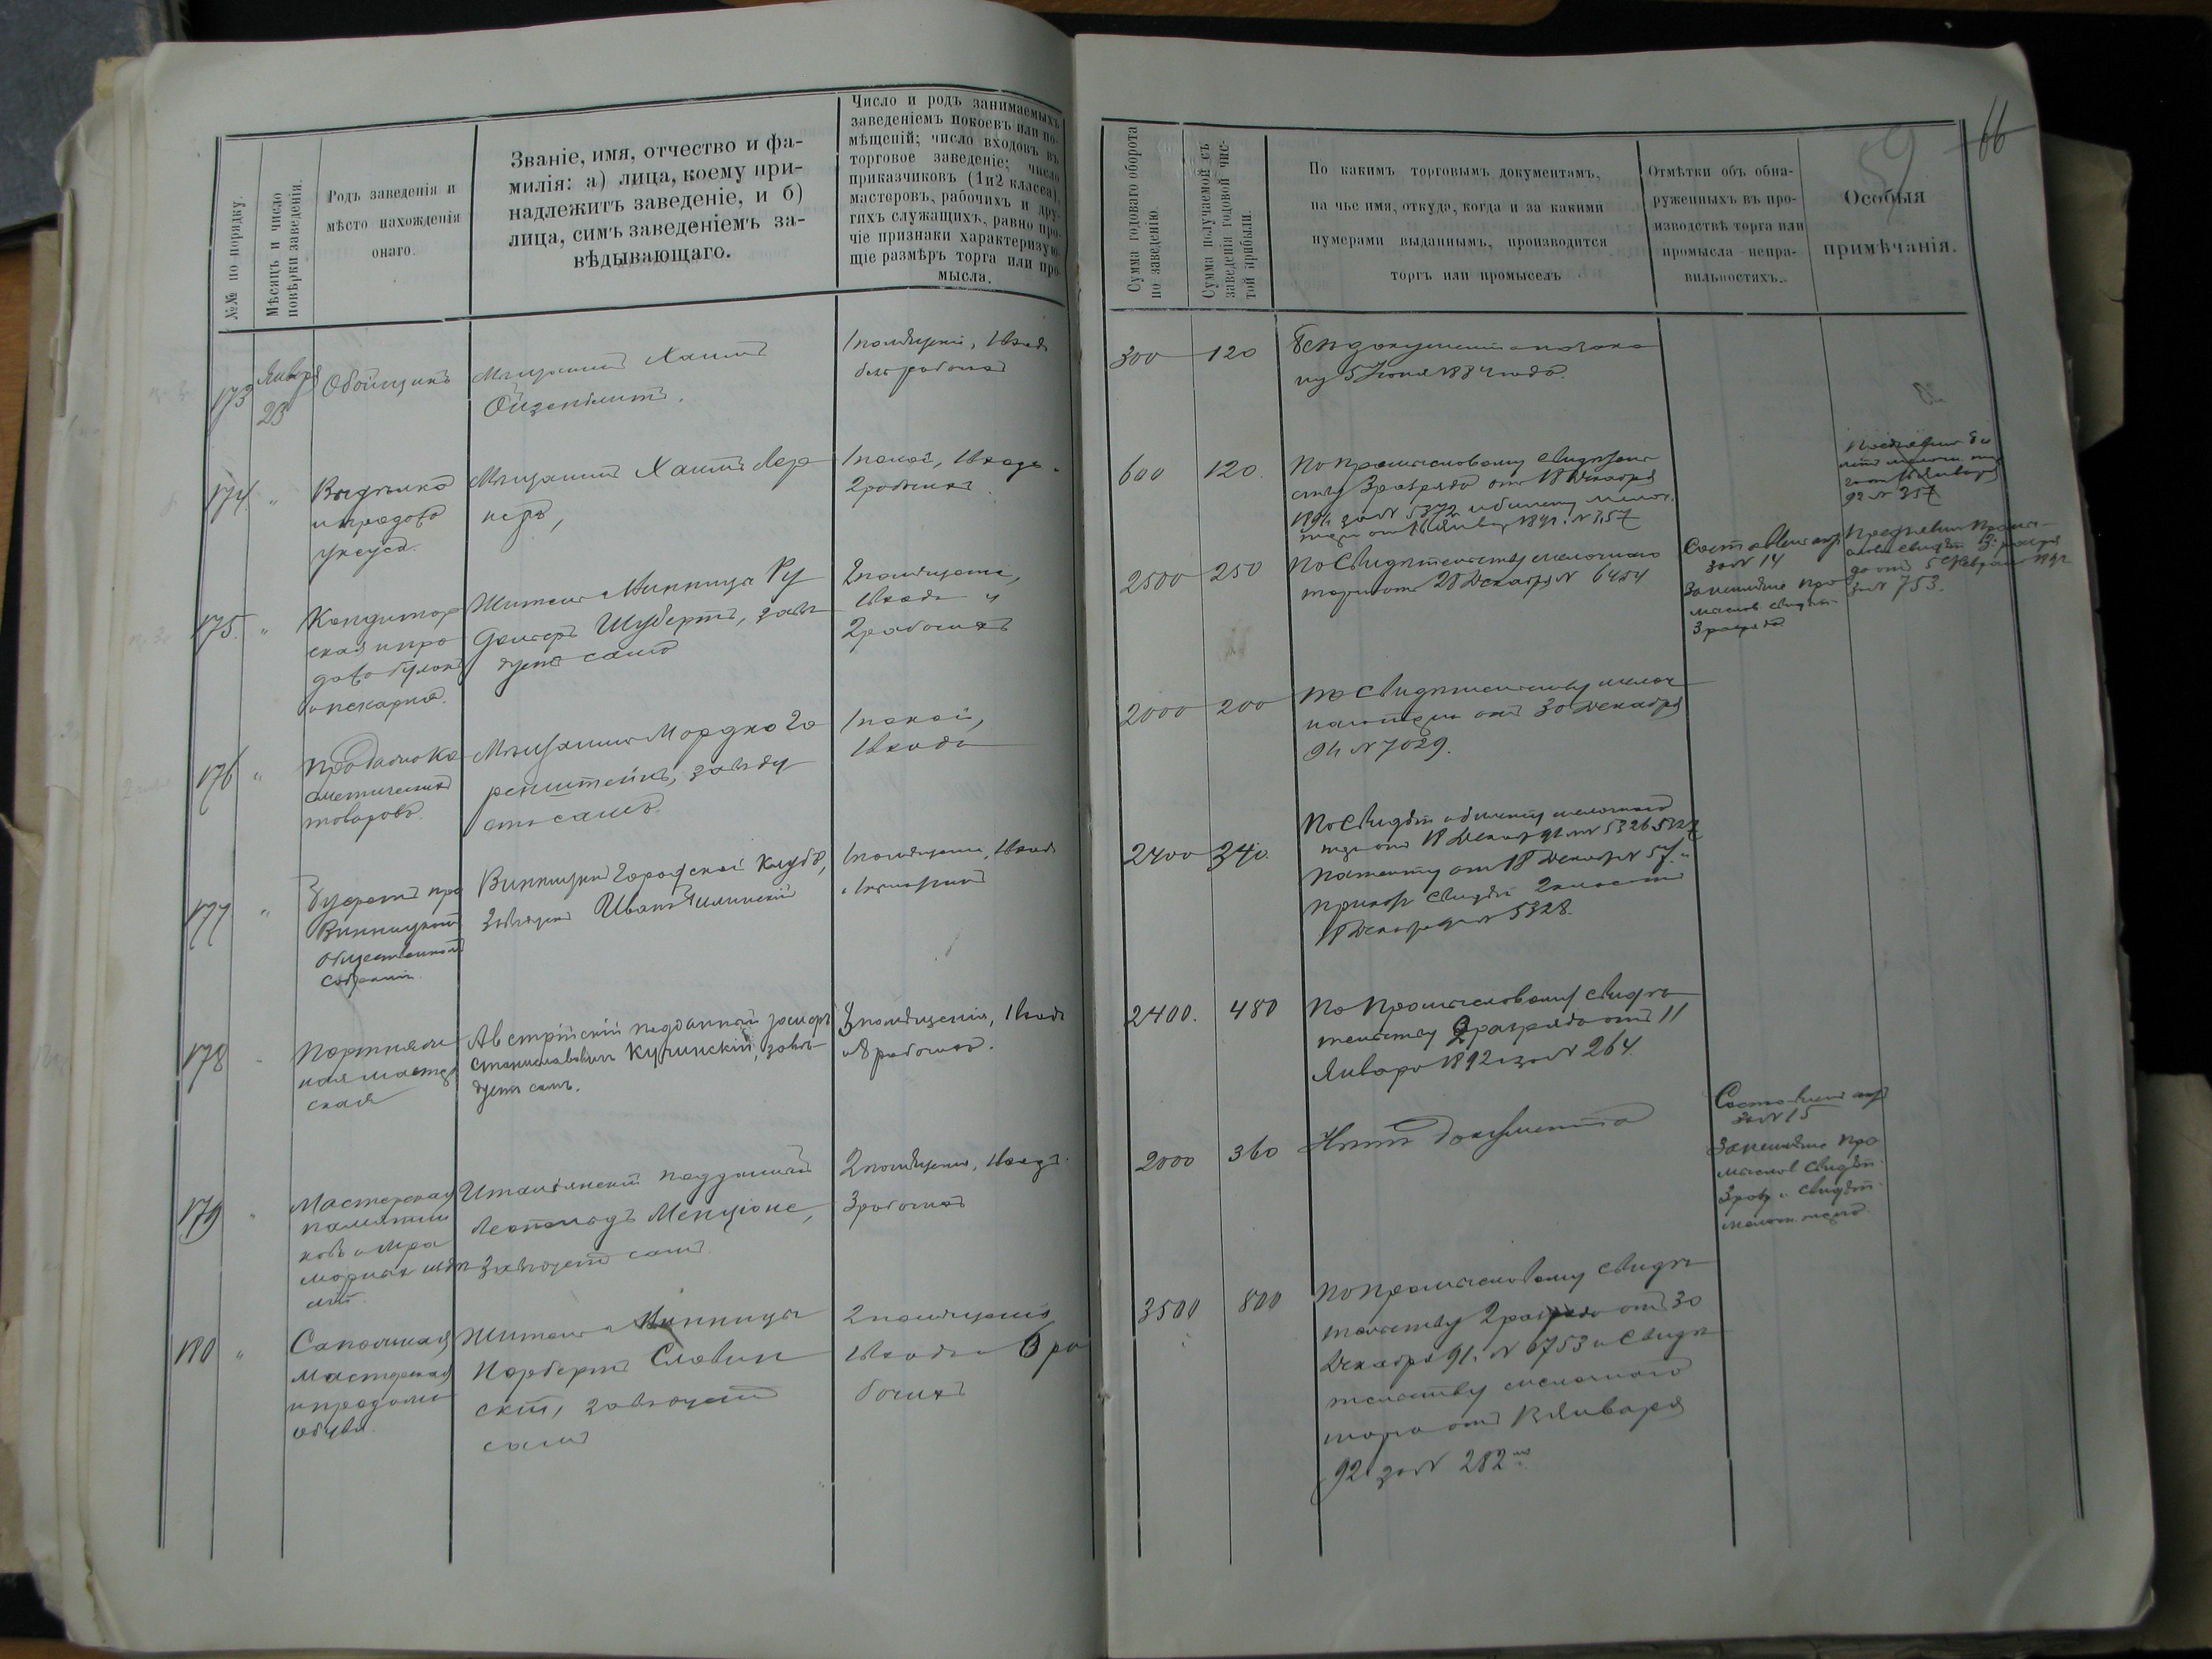 №№ по порядку.
Мѣсяцъ и число
повѣрки заведенія.
Родъ заведенія и
мѣсто нахожденія
онаго.
Званіе, имя, отчество и фа-
милія: а) лица, коему при-
надлежитъ заведеніе, и б)
лица, симъ заведеніемъ за-
вѣдывающаго.
Число и родъ занимаемыхъ
заведеніемъ покоевъ или по-
мѣщеній; число входовъ въ
торговое заведеніе; число
приказчиковъ (1 и 2 класса),
мастеровъ, рабочихъ и дру-
гихъ служащихъ, равно про-
чіе признаки характеризую-
щіе размѣръ торга или про-
мысла.
Сумма годоваго оборота
по заведенію.
Сумма получаемой съ
заведенія годовой чис-
той прибыли.
По какимъ торговымъ документамъ,
на чье имя, откуда, когда и за какими
нумерами выданнымъ, производится
торгъ или промыселъ
Отмѣтки объ обна-
руженныхъ въ про-
изводствѣ торга или
промысла неправ-
вильностяхъ.
Особыя
примѣчанія.
59
66
173
Января
23
Обойщикъ
Мѣщанинъ Хаимъ
1 помѣщеніе, 1 входъ
безъ рабочихъ
300
120
174
"
Выдѣлка
и продажа
уксуса.
Мѣщанинъ Хаимъ Лер
неръ,
1 покой, 1 входъ
2 рабочихъ
600
120.
По промысловому свидѣтель
ству 3 разряда отъ 18 Декабря
1891 за № 5372 и билету мелоч.
№ 357
92 № 357
175.
"
Кондитер
ская и про
дажа булокъ
и пекарня.
Житель г. Винницы Ру
дольфъ Шубертъ, завѣ
дуетъ самъ
2 помѣщенія,
1 входъ и
2 рабочихъ
2500
250
По свидѣтельству мелочнаго
торга отъ 28 Декабря № 6454
Составленъ актъ
за № 14
За неимѣніе про
мыслов. свидѣт.
3 разряда.
за № 753.
176
"
Продажа ко
сметическихъ
товаровъ.
Мѣщанинъ Мордко Го
ренштейнъ, завѣду
етъ самъ.
1 покой,
1 входъ
2000
200
По свидѣтельству мелоч
наго торга отъ 30 Декабря
91 № 7029.
177
"
Буфетъ при
Винницкомъ
общественномъ
собраніи.
Винницкій Городской Клубъ,
1 помѣщеніе, 1 входъ
2400
340.
По свидѣт. и билету мелочнаго
торга отъ 18 Декабря 91 № 5326 5327
Патенту отъ 18 Декабря № 57
приказ. свидѣт. 2 класса
18 Декабря за № 5328.
178
Портняж
ная мастер
ская
Австрійскій подданный
Станиславовичъ Кучинскій, завѣ-
дуетъ самъ.
3 помѣщенія, 1 входъ
и 8 рабочихъ.
2400.
480
По промысловому свидѣ
тельству 2 разряда отъ 11
Января 1892 за № 264.
179
"
Мастерская
памятни
ковъ и мра
морныхъ издѣ
лій.
Итальянскій подданный
Леопольдъ Менціоне,
Завѣдуетъ самъ.
2 помѣщенія, 1 входъ
3 рабочихъ
2000
360
Нѣтъ документа
Составленъ актъ
за № 15
За неимѣніе про
мыслов. свидѣт.
3 разр. и свидѣт.
мелочн. торга.
180
"
Сапожная
мастерская
и продажа
обуви.
Житель г. Винницы
Норбертъ Славин
скій, завѣдуетъ
самъ
2 помѣщенія
1 входъ и 3 ра
бочихъ
3500
800
По промысловому свидѣ
тельству 2 разряда отъ 30
Декабря 91 г. № 6753 и свидѣ
тельству мелочнаго
торга отъ 13 Января
92 за № 282